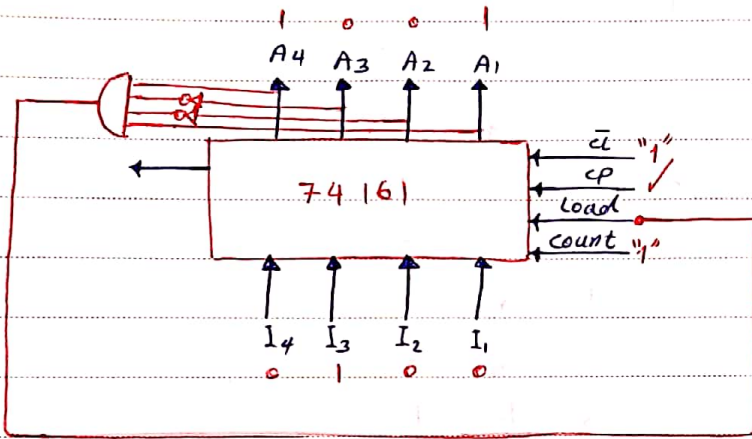 1 0 0 1
A4 A3 A2 A1
74161
c̅l̅ "1"
CP
Load
Count "1"
I4 I3 I2 I1
0 1 0 0